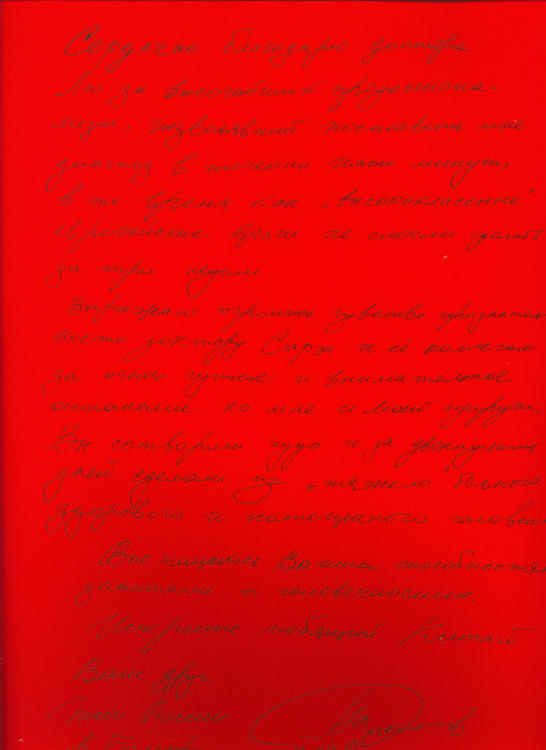 Сердечно благодарю доктора
Лю за высочайший профессиона-
лизм, позволивший поставить мне
диагноз в течении пяти минут,
в то время как „высококлассные“
европейские врачи не смогли сделать
за три недели
Выражаю огромное чувство признатель
ности доктору Саре и её коллегам
за очень чуткое и внимательное
отношение ко мне и моей супруге.
Вы сотворили чудо и за двенадцать
дней сделали из „тяжело больного
здорового и полноценного человек
Восхищаюсь Вашими способностя
знаниями и человечностью.
Искренне любящий Китай
Ваш друг